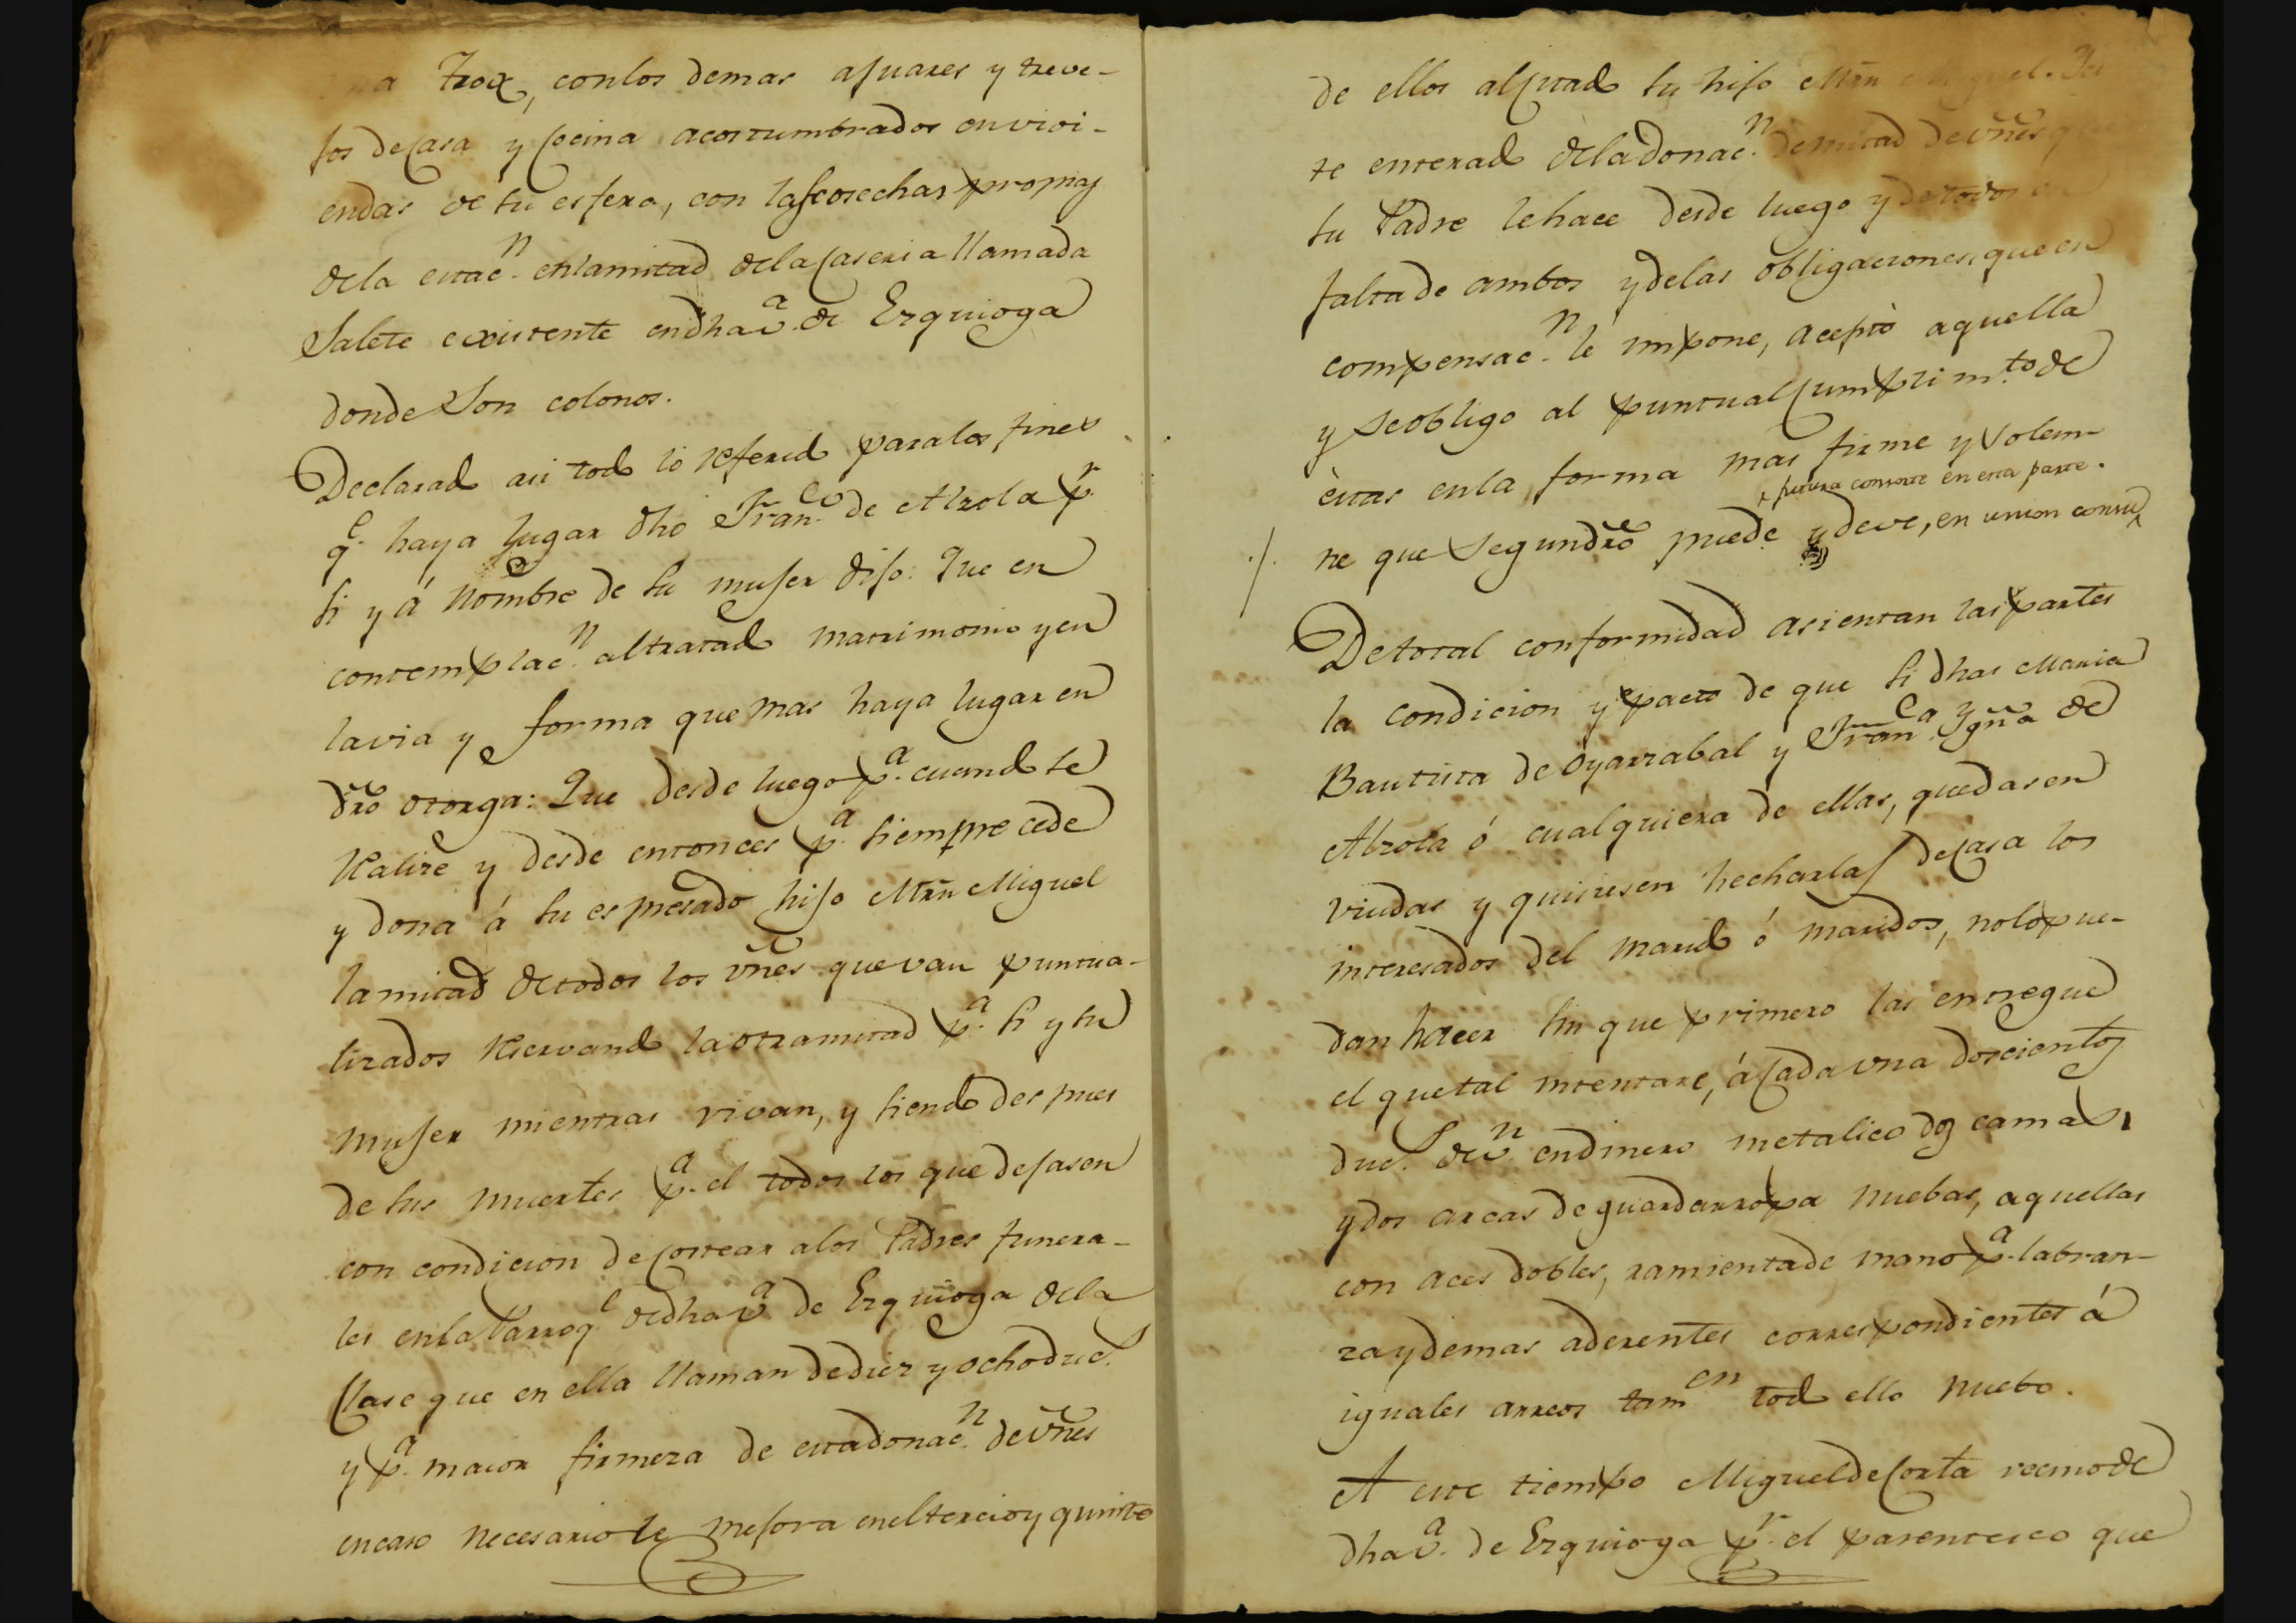 una Trox, con los demas ajuares y treve-
jos de Casa y Cocina acostumbrados en vivi-
endas de su esfera, con las cosechas propias
de la estac.n en la mitad de la Caseria llamada
Salete existente en dha v.a de Ezquioga
donde son colonos.
Declarado asi todo lo referido para los fines
q.e haya lugar dho Fran.co de Alzola p.r
si y á nombre de su mujer dijo: Que en
contemplac.n al tratado matrimonio y en
la via y forma que mas haya lugar en
dro otorga: Que desde luego p.a cuando se
Realize y desde entonces p.a siempre cede
y dona á su espresado hijo Mrñ Miguel
la mitad de todos los vñes que van puntua-
lizados Reservando la otra mitad p.a si y su
mujer mientras vivan, y siendo despues
de sus muertes p.a el todos los que dejasen
con condicion de costear a los Padres funera-
les en la Parroq.l de dha v.a de Ezquioga de la
Clase que en ella llaman de diez y ocho duc.s
y p.a maior firmeza de esta donac.n de vñes
en caso necesario le mejora en el tercio y quinto
de ellos al citado su hijo Mrñ Miguel.
te enterado de la donac.n de mitad de vñes q
su Padre le hace desde luego y de todos en
falta de ambos y de las obligaciones, que en
compensac.n le impone, aceptó aquella
y se obligo al puntual Cumplim.to de
éstas en la forma mas firme y solem-
x futura consorte en esta parte.
./. ne que segun dro puede y deve, en union con su x
De total conformidad asientan las partes
la condicion y pacto de que si dhas Maria
Bautista de Oyarzabal y Fran.ca Ygña de
Alzola ó cualquiera de ellas, quedasen
viudas y quisiesen hecharlas de casa los
interesados del marido ó maridos, no lo pue-
dan hacer sin que primero las entregue
el que tal intentare, á Cada una doscientos
duc.s de v.n en dinero metalico dos camas,
y dos arcas de guardarropa nuebas, aquellas
con aces dobles, ramienta de mano p.a labran-
za y demas aderentes correspondientes á
iguales arreos tam.en todo ello nuebo.
A este tiempo Miguel de Corta vecino de
dha v.a de Ezquioga p.r el parentesco que